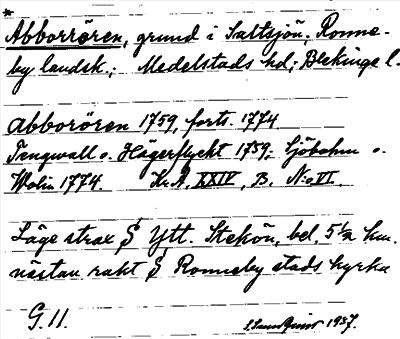 *
Abborrören, grund i Saltsjön, Ronne-
by landsk.; Medelstads hd; Blekinge l.
Abborören 1759, forts. 1774
Tengwall o. Hägerflycht 1759; Sjöbohm o.
Wolin 1774. Kr. A. XXIV, B. N:o VI.
Läge strax S Ytt. Stekön, bel. 5 1/2 km.
nästan rakt S Ronneby stads kyrka
G. 11. 1937.